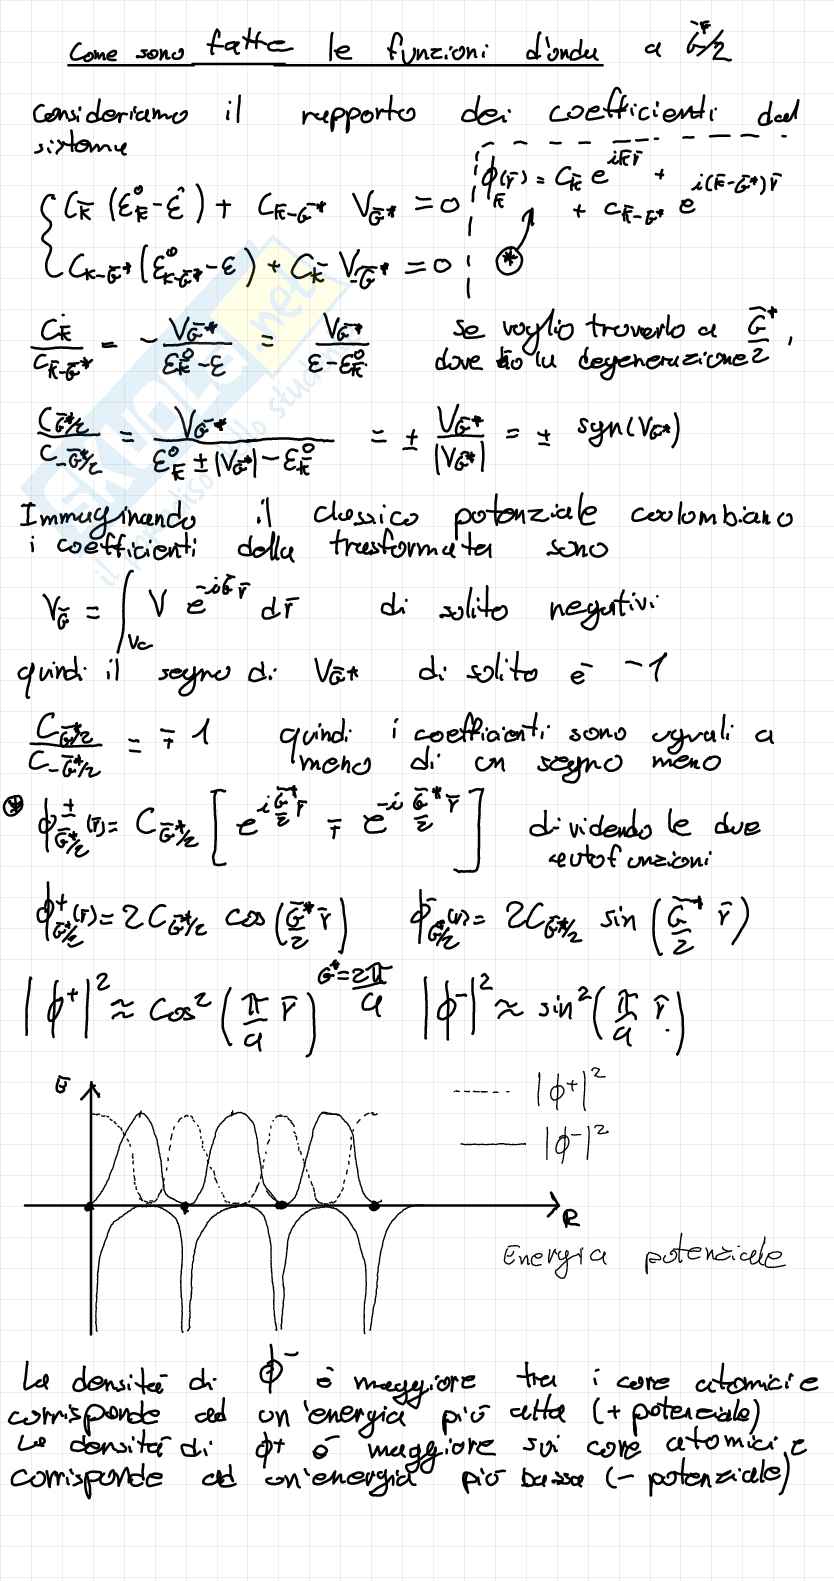 Come sono fatte le funzioni d'onda a G̅*/2
Consideriamo il rapporto dei coefficienti dal
sistema
{ C_k̅ (ε⁰_k̅ - ε) + C_k̅-G̅* V_G̅* = 0
C_k-G̅* (ε⁰_k-G̅* - ε) + C_k̅ V_-G̅* = 0
ϕ_k̅(r̅) = C_k̅ e^{ik̅r̅} +
+ C_k̅-G̅* e^{i(k̅-G̅*)r̅}
*
C_k̅ / C_k̅-G̅* = - V_G̅* / (ε⁰_k̅ - ε) = V_G̅* / (ε - ε⁰_k̅) se voglio trovarlo a G̅*/2,
dove ho la degenerazione
C_G̅*/2 / C_-G̅*/2 = V_G̅* / (ε⁰_k̅ ± |V_G̅*| - ε⁰_k̅) = ± V_G̅* / |V_G̅*| = ± sgn(V_G*)
Immaginando il classico potenziale coulombiano
i coefficienti della trasformata sono
V_G̅ = ∫_Vc V e^{-iG̅r̅} dr̅ di solito negativi
quindi il segno di V_G̅* di solito è -1
C_G̅*/2 / C_-G̅*/2 = ∓ 1 quindi i coefficienti sono uguali a
meno di un segno meno
* ϕ^±_G̅*/2(r̅) = C_G̅*/2 [ e^{i G̅*/2 r̅} ∓ e^{-i G̅*/2 r̅} ] dividendo le due
autofunzioni
ϕ^+_G̅*/2(r) = 2C_G̅*/2 cos(G̅*/2 r̅) ϕ^-_G̅*/2(r) = 2C_G̅*/2 sin(G̅*/2 r̅)
|ϕ^+|² ≈ cos²(π/a r̅) G* = 2π/a |ϕ^-|² ≈ sin²(π/a r̅)
E
---- |ϕ^+|²
— |ϕ^-|²
R
Energia potenziale
La densità di ϕ^- è maggiore tra i core atomici e
corrisponde ad un'energia più alta (+ potenziale)
La densità di ϕ^+ è maggiore sui core atomici e
corrisponde ad un'energia più bassa (- potenziale)